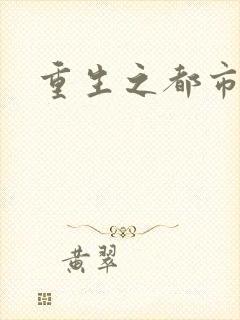 重生之都市
黄翠